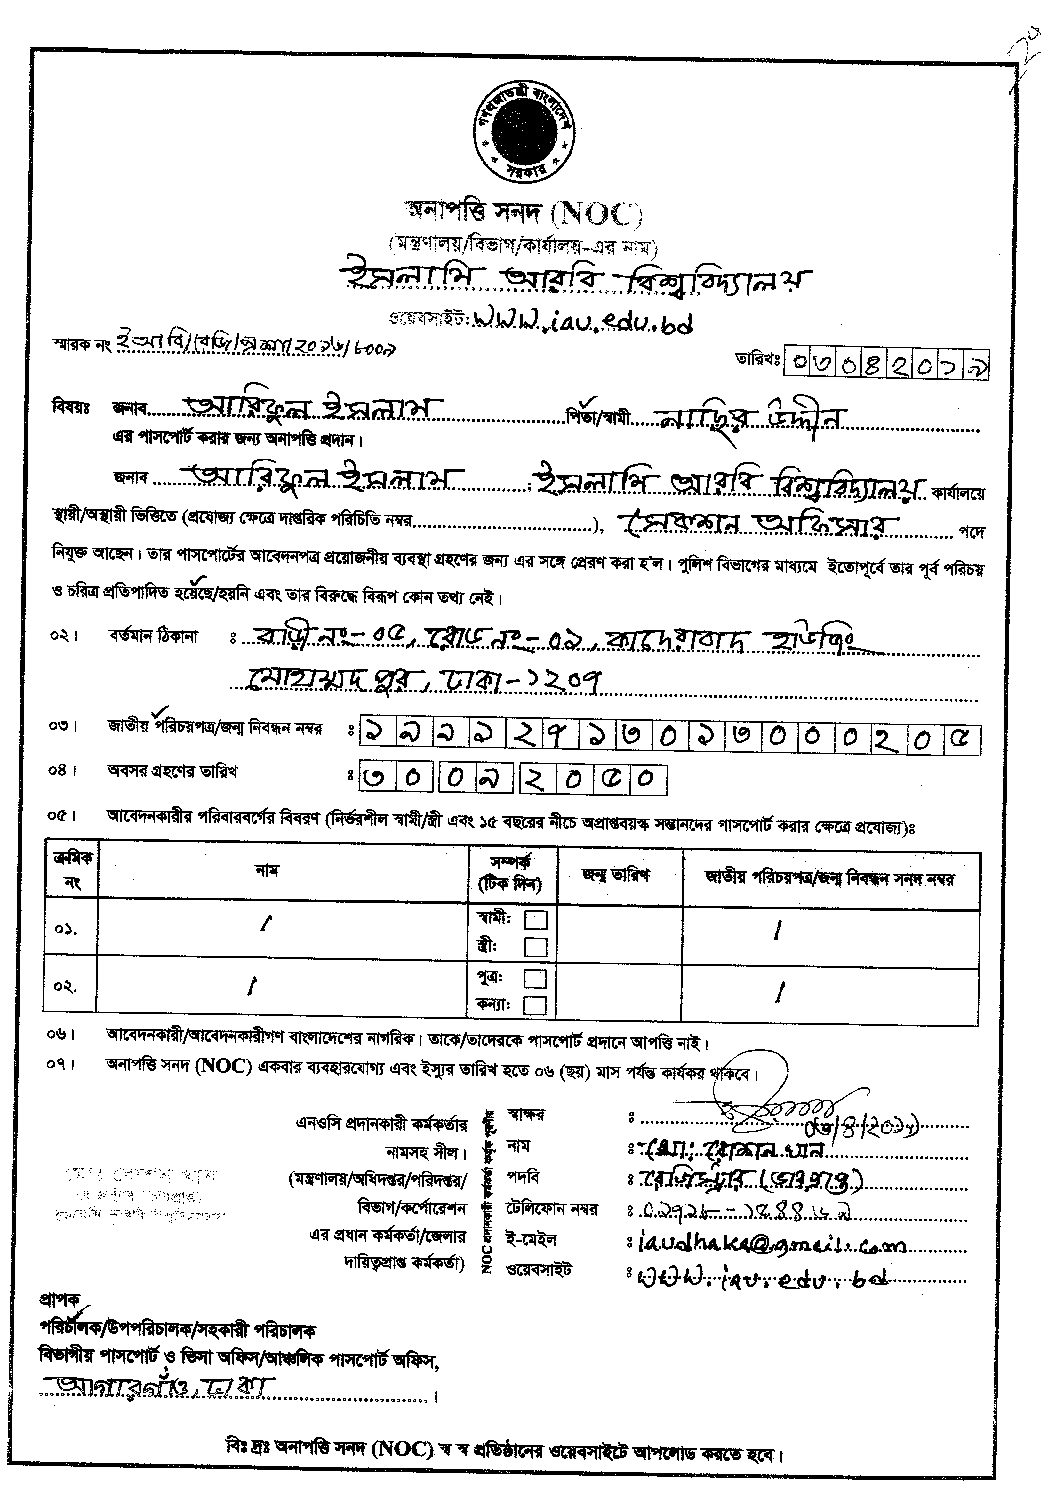 গণপ্রজাতন্ত্রী বাংলাদেশ
সরকার
অনাপত্তি সনদ (NOC)
(মন্ত্রণালয়/বিভাগ/কার্যালয়-এর নাম)
ইসলামি আরবি বিশ্ববিদ্যালয়
ওয়েবসাইট: www.iau.edu.bd
স্মারক নং
তারিখঃ ০৩০৪২০১৯
বিষয়ঃ জনাব আরিফুল ইসলাম পিতা/স্বামী নাছির উদ্দীন
এর পাসপোর্ট করার জন্য অনাপত্তি প্রদান।
জনাব আরিফুল ইসলাম , ইসলামি আরবি বিশ্ববিদ্যালয় কার্যালয়ে
স্থায়ী/অস্থায়ী ভিত্তিতে (প্রযোজ্য ক্ষেত্রে দাপ্তরিক পরিচিতি নম্বর..............................), সেকশন অফিসার পদে
নিযুক্ত আছেন। তার পাসপোর্টের আবেদনপত্র প্রয়োজনীয় ব্যবস্থা গ্রহণের জন্য এর সঙ্গে প্রেরণ করা হ'ল। পুলিশ বিভাগের মাধ্যমে ইতোপূর্বে তার পূর্ব পরিচয়
ও চরিত্র প্রতিপাদিত হয়েছে/হয়নি এবং তার বিরুদ্ধে বিরূপ কোন তথ্য নেই।
০২। বর্তমান ঠিকানা : বাড়ী নং-০৫, রোড নং-০১, কাদেরাবাদ হাউজিং
মোহাম্মদপুর, ঢাকা-১২০৭
০৩। জাতীয় পরিচয়পত্র/জন্ম নিবন্ধন নম্বর ঃ
০৪। অবসর গ্রহণের তারিখ ঃ ৩০০৯২০৫০
০৫। আবেদনকারীর পরিবারবর্গের বিবরণ (নির্ভরশীল স্বামী/স্ত্রী এবং ১৫ বছরের নীচে অপ্রাপ্তবয়স্ক সন্তানদের পাসপোর্ট করার ক্ষেত্রে প্রযোজ্য)ঃ
ক্রমিক নং নাম সম্পর্ক (টিক দিন) জন্ম তারিখ জাতীয় পরিচয়পত্র/জন্ম নিবন্ধন সনদ নম্বর
০১. / স্বামী: /
স্ত্রী:
০২. / পুত্র: /
কন্যা:
০৬। আবেদনকারী/আবেদনকারীগণ বাংলাদেশের নাগরিক। তাকে/তাদেরকে পাসপোর্ট প্রদানে আপত্তি নাই।
০৭। অনাপত্তি সনদ (NOC) একবার ব্যবহারযোগ্য এবং ইস্যুর তারিখ হতে ০৬ (ছয়) মাস পর্যন্ত কার্যকর থাকিবে।
এনওসি প্রদানকারী কর্মকর্তার
নামসহ সীল।
(মন্ত্রণালয়/অধিদপ্তর/পরিদপ্তর/
বিভাগ/কর্পোরেশন
এর প্রধান কর্মকর্তা/জেলার
দায়িত্বপ্রাপ্ত কর্মকর্তা)
NOC প্রদানকারী কর্মকর্তা কর্তৃক পূরণীয়
স্বাক্ষর ঃ ০৩/৪/২০১৯
নাম ঃ মো: রোশন খান
পদবি ঃ রেজিস্ট্রার (ভারপ্রাপ্ত)
টেলিফোন নম্বর ঃ
ই-মেইল ঃ iaudhaka@gmail.com
ওয়েবসাইট ঃ www.iau.edu.bd
প্রাপক
পরিচালক/উপপরিচালক/সহকারী পরিচালক
বিভাগীয় পাসপোর্ট ও ভিসা অফিস/আঞ্চলিক পাসপোর্ট অফিস,
আগারগাঁও, ঢাকা।
বিঃ দ্রঃ অনাপত্তি সনদ (NOC) স্ব স্ব প্রতিষ্ঠানের ওয়েবসাইটে আপলোড করতে হবে।